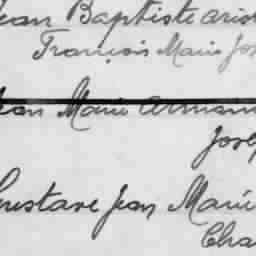 Jean Baptiste Aris
François Marie Jos
Jean Marie Armand
Jose
Gustave Jean Marie
Cha